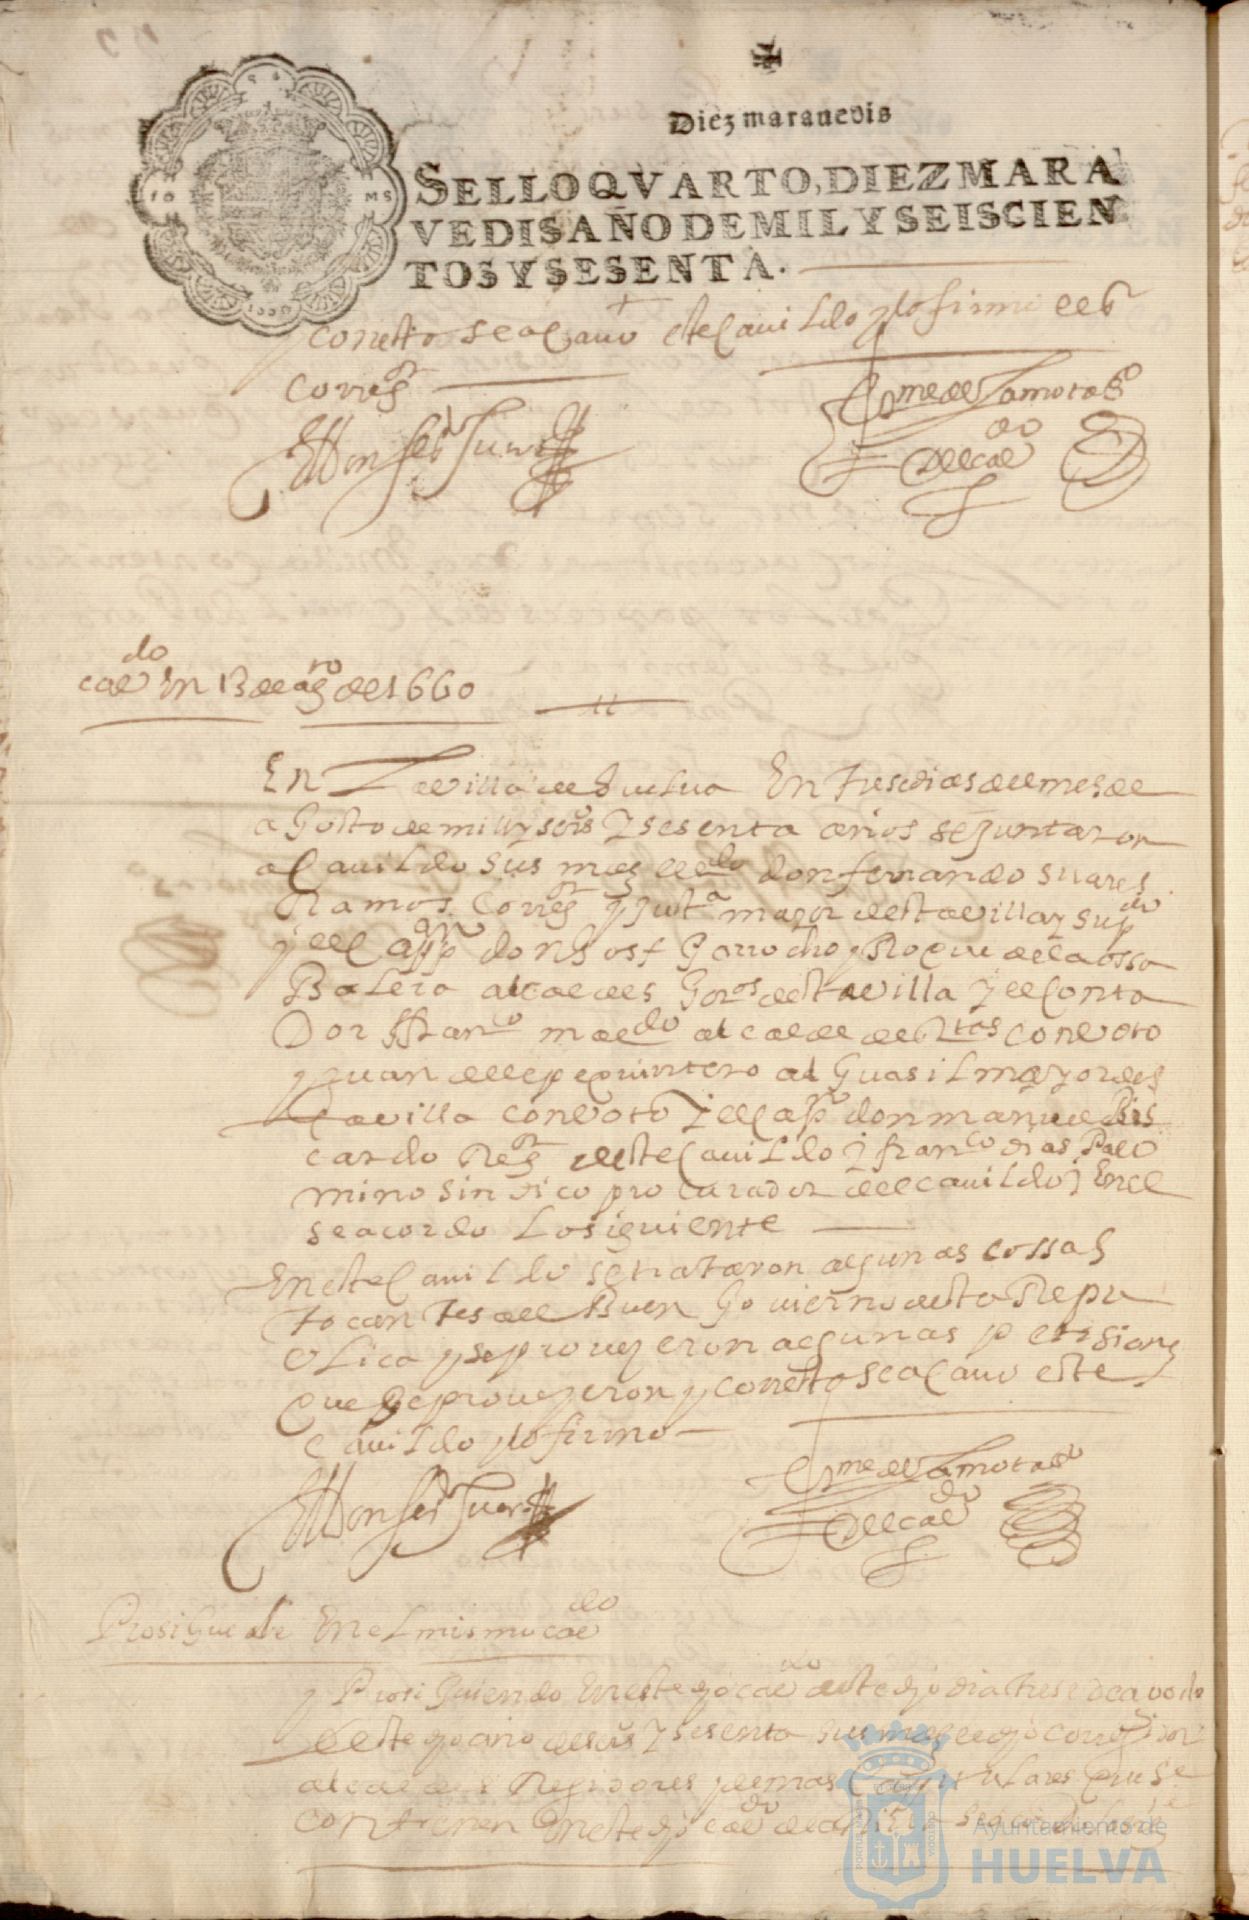 Diez maravedis
SELLO QVARTO, DIEZ MARA
VEDIS AÑO DE MIL Y SEISCIEN
TOS Y SESENTA.
y con esto se acavo este cavildo y lo firmo el sr
corregr
Ldo Don ferdo Suares
me de Zamora sso
del cavdo
cavdo En 13 de agto de 1660
En La villa de Huelva En tres dias del mes de
agosto de mill y seiss y sesenta años se juntaron
a cavildo sus mds el ldo don fernando suares
Ramos Corregr y justa mayor desta villa y su pdo
y el capn don Josef Garrocho y Roque de la ossa
Balera alcaldes horos desta villa y el conta
Dor ffranco maldo alcalde de con voto
y juan de lepe quintero alguasil mayor des
ta villa con voto y el capn don manuel Pis
cardo Regr deste cavildo y franco dias Palo
mino sindico procurador del cavildo y En el
se acordo Lo siguiente
En este cavildo se trataron algunas cossas
tocantes al Buen Govierno desta Repu
blica y se proveyeron algunas petisiones
que se proveyeron y con esto se acavo este
cavildo y lo firmo
Ldo Don ferdo Suares
me de Zamora sso
del cavdo
Prosiguese En el mismo cavdo
y Prosiguiendo En este dho cavdo deste dho dia tres de agosto
deste dho año de seiss y sesenta sus mds el dho corregidor
alcaldes Regidores y demas capitulares que se
contienen En este dho cavdo
Ayuntamiento de
HUELVA